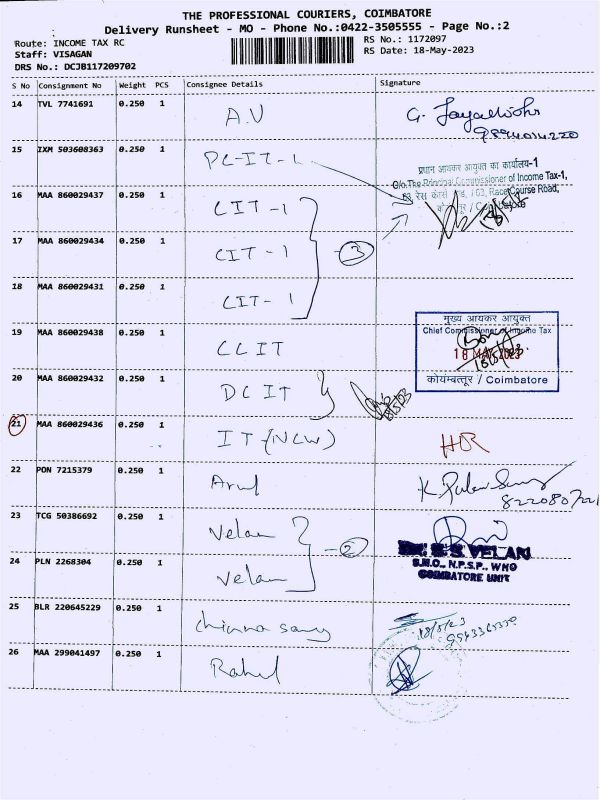 THE PROFESSIONAL COURIERS, COIMBATORE
Delivery Runsheet - MO - Phone No.:0422-3505555 - Page No.:2
Route: INCOME TAX RC
Staff: VISAGAN
DRS No.: DCJB117209702
RS No.: 1172097
RS Date: 18-May-2023
S No Consignment No Weight PCS Consignee Details Signature
14 TVL 7741691 0.250 1 A.V
15 IXM 503608363 0.250 1 PC-IT-1
प्रधान आयकर आयुक्त का कार्यालय-1
O/o.The Principal Commissioner of Income Tax-1,
63, Race Course Road,
16 MAA 860029437 0.250 1 CIT-1
17 MAA 860029434 0.250 1 CIT-1 3
18 MAA 860029431 0.250 1 CIT-1
मुख्य आयकर आयुक्त
Chief Commissioner of Income Tax
18 MAY 2023
कोयम्बत्तूर / Coimbatore
19 MAA 860029438 0.250 1 CCIT
20 MAA 860029432 0.250 1 DCIT
21 MAA 860029436 0.250 1 IT (NCW)
22 PON 7215379 0.250 1 Arul
23 TCG 50386692 0.250 1 Velan
Dr. S S VELAN
S.M.O., N.P.S.P., WHO
COIMBATORE UNIT
24 PLN 2268304 0.250 1 Velan 2
25 BLR 220645229 0.250 1 Chinna samy 18/5/23
26 MAA 299041497 0.250 1 Rahul